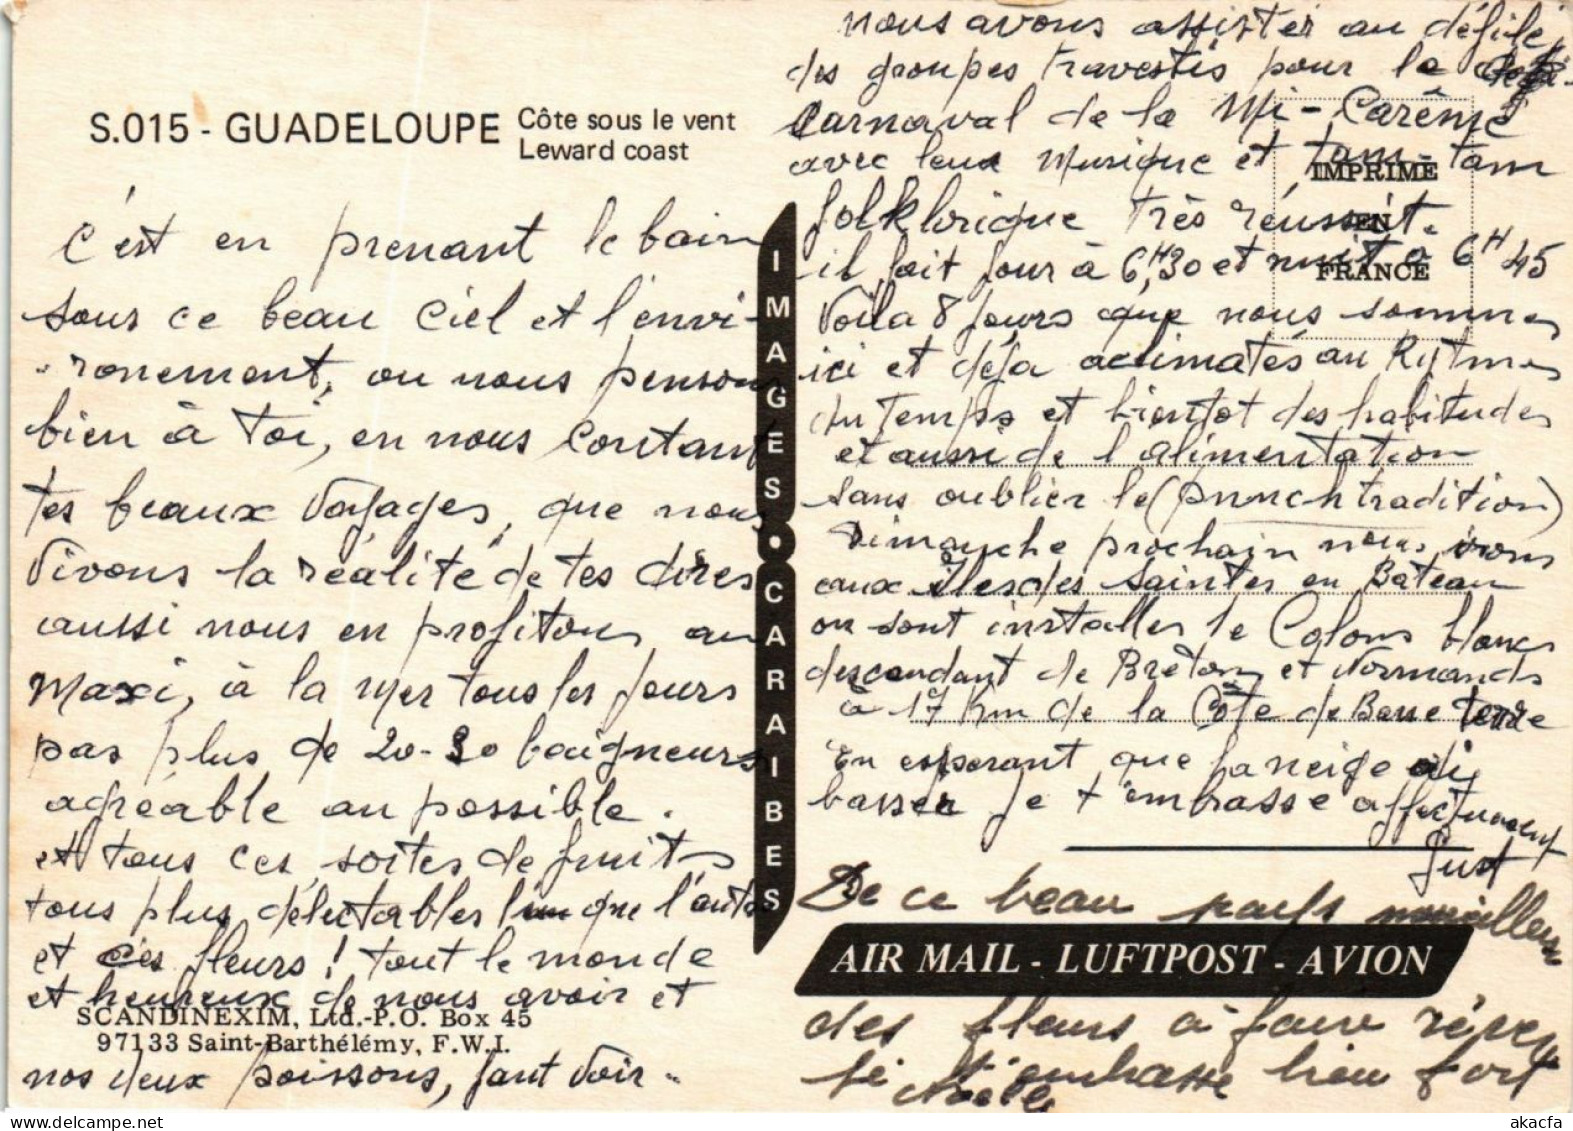 S.015 - GUADELOUPE Côte sous le vent
Leward coast
c'est en prenant le bain
sous ce beau ciel et l'envi-
ronement, ou nous pensons
bien à toi, en nous contant
tes beaux voyages, que nous
vivons la réalité de tes dires
aussi nous en profitons au
Maxi, à la mer tous les jours
pas plus de 20-30 baigneurs
agréable au possible.
et tous ces sortes de fruits
tous plus délectables l'un que l'autre
et ces fleurs! tout le monde
et heureux de nous avoir et
SCANDINEXIM, Ltd.-P.O. Box 45
97133 Saint-Barthélémy, F.W.I.
nos deux poissons, faut voir..
IMAGES • CARAIBES
nous avons assister au défilé
des groupes travestis pour le
Carnaval de la Mi-Carême
avec leur musique et tam-tam
folklorique très réussit.
IMPRIMÉ
EN
FRANCE
il fait jour à 6H30 et nuit à 6H45
Voila 8 jours que nous sommes
ici et déja aclimatés au Rytme
du temps et bientot des habitudes
et aussi de l'alimentation
sans oublier le (punch tradition)
Dimanche prochain nous irons
aux îles des Saintes en Bateau
ou sont installer le Colons blancs
descendant de Breton et Normands
à 17 Km de la Côte de Basse terre
En esperant que la neige ai
basser je t'embrasse affectueument
Just
De ce beau pays merveilleux
AIR MAIL - LUFTPOST - AVION
des fleurs à faire rêver
je t'embrasse bien fort